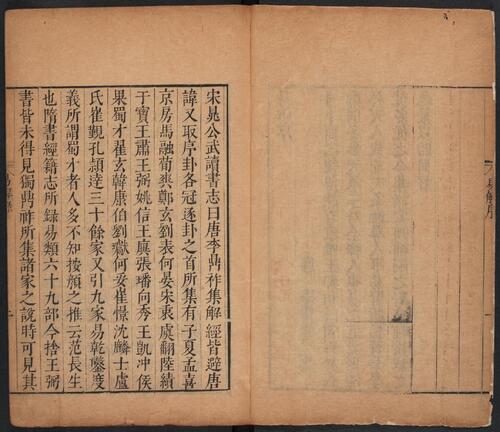 宋晁公武讀書志曰唐李鼎祚集解經皆避唐
諱又取序卦各冠逐卦之首所集有子夏孟喜
京房馬融荀爽鄭玄劉表何晏宋衷虞翻陸績
于寶王肅王弼姚信王廙張璠向秀王凱冲侯
果蜀才翟玄韓康伯劉巘何妥崔憬沈驎士盧
氏崔覲孔頴達三十餘家又引九家易乾鑿度
義所謂蜀才者人多不知按顏之推云范長生
也隋書經籍志所錄易類六十九部今捨王弼
書皆未得見獨鼎祚所集諸家之說時可見其